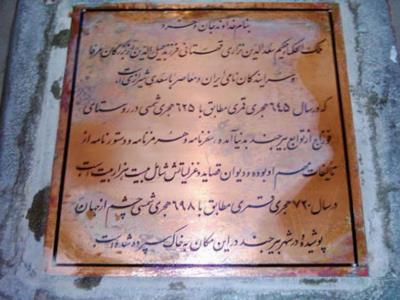 بنام خداوند جان و خرد
ملک الحکما حکیم سعدالدین نزاری قهستانی فرزند شمس الدین از بزرگان عرفا
و سرایندگان نامی ایران و معاصر با سعدی شیرازی است
که در سال ۶۴۵ هجری قمری مطابق با ۶۲۵ هجری شمسی در روستای
فوداج از توابع بیرجند بدنیا آمده، سفرنامه و هرمزنامه و دستورنامه از
تالیفات مهم او بوده و دیوان قصاید و غزلیاتش شامل بیت هزار بیت است
در سال ۷۲۰ هجری قمری مطابق با ۶۹۸ هجری شمسی چشم از جهان
پوشیده و در شهر بیرجند در این مکان به خاک سپرده شده است.